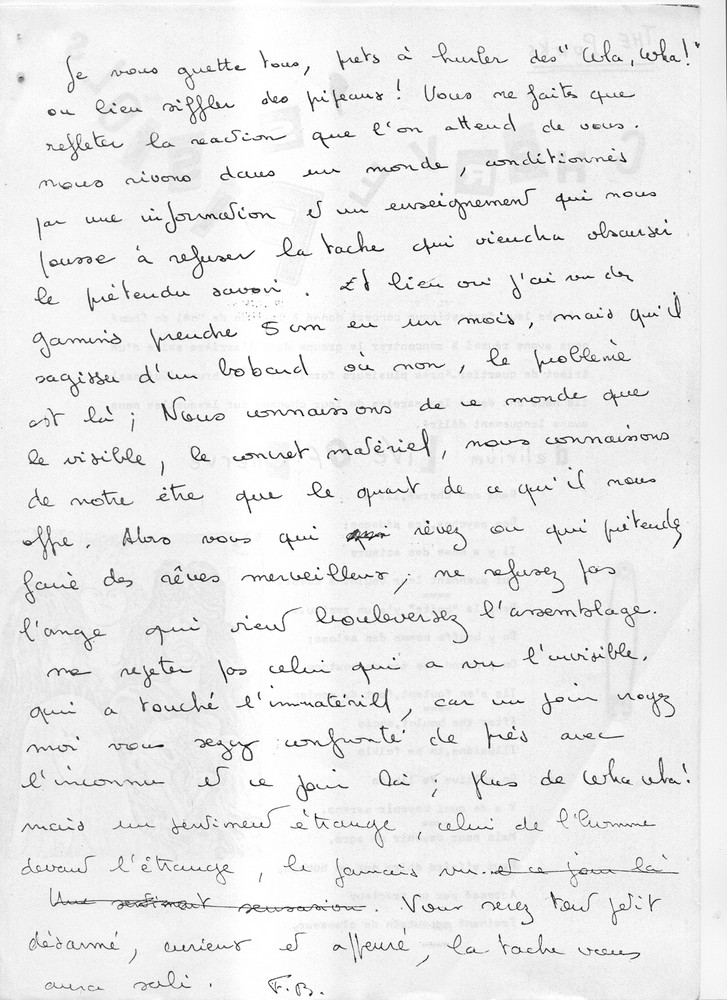 Je vous guette tous, prets à hurler des "Wha, Wha!"
ou bien siffler des pipeaux! Vous ne faites que
refleter la reaction que l'on attend de vous.
nous vivons dans un monde, conditionnés
par une information et un enseignement qui nous
pousse à refuser la tache qui viendra obscursir
le prétendu savoir. Et bien oui j'ai vu des
gamins prendre 5 cm en un mois, mais qu'il
sagisse d'un bobard où non, le problème
est là; Nous connaissons de ce monde que
le visible, le concret matériel, nous connaissons
de notre être que le quart de ce qu'il nous
offre. Alors vous qui rêvez ou qui prétendez
faire des rêves merveilleux; ne refusez pas
l'ange qui vient bouleversez l'assemblage.
ne rejeter pas celui qui a vu l'invisible.
qui a touché l'immatériell, car un jour
moi vous serez confronté de près avec
l'inconnu et ce jour là; plus de Wha wha!
mais un sentiment étrange, celui de l'homme
devant l'étrange, le jamais vu. et ce jour là
Une sentiment sensasion. Vous serez tout petit
désarmé, curieux et affeuré, la tache vous
aura sali. F.B.